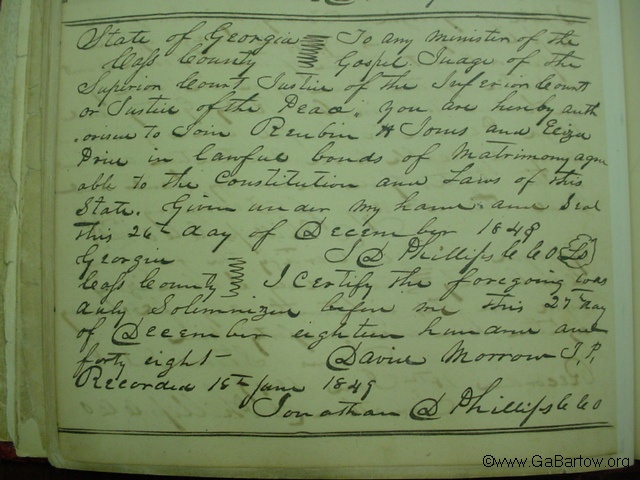 State of Georgia To any Minister of the
Cass County Gospel Judge of the
Superior Court Justice of the Inferior Court
or Justice of the Peace. You are hereby auth
orised to Join Reubin H Jones and Eliza
Price in lawful bonds of Matrimony agree
able to the Constitution and Laws of this
State. Given under my hand and Seal
this 26th day of December 1848
Georgia J D Phillips C C O LS
Cass County I Certify the foregoing was
duly Solemnized before me this 27th day
of December eighteen hundred and
forty eight David Morrow J.P.
Recorded 18th June 1849
Jonathan D Phillips C C O
©www.GaBartow.org